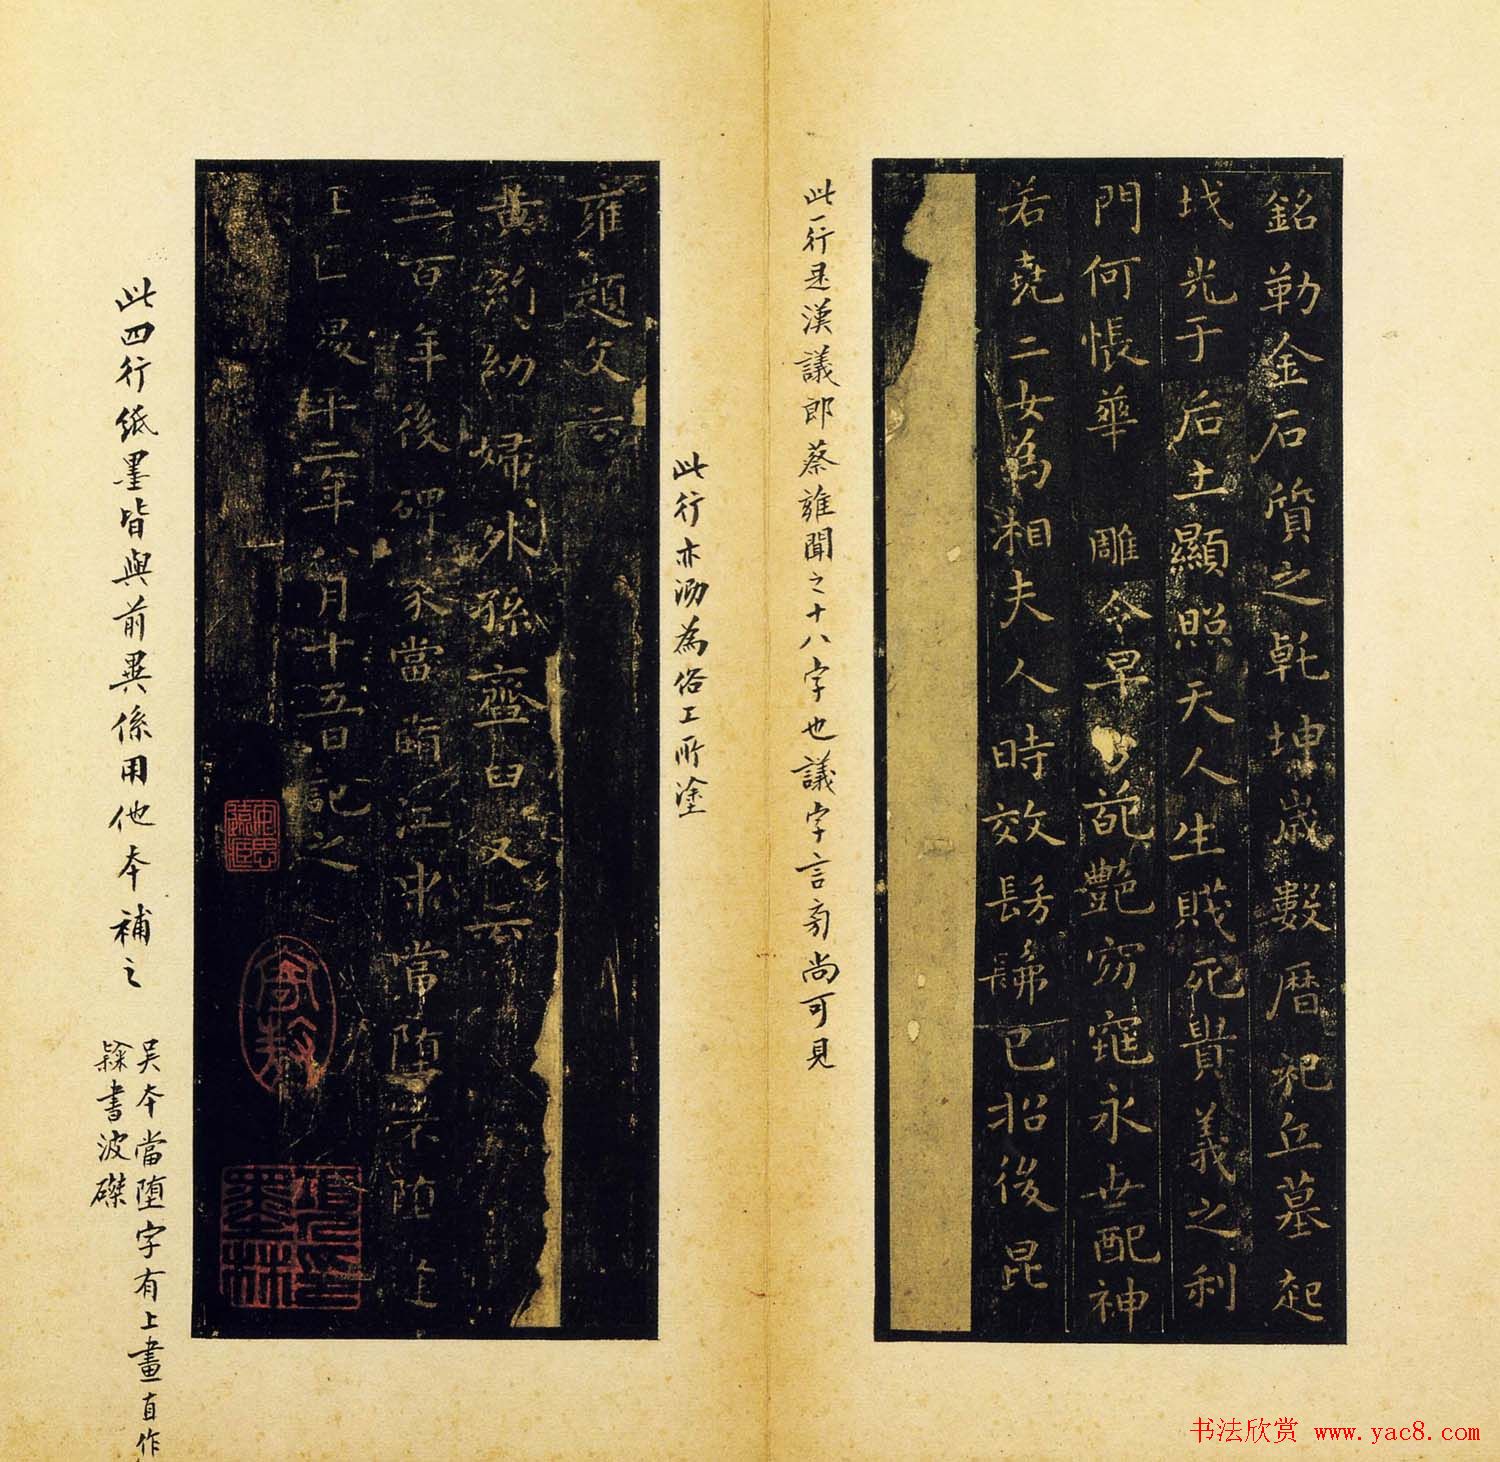 銘勒金石質之乹坤歲數曆祀丘墓起
坟光于后土顯照天人生賤死貴義之利
門何悵華雕今早葩艷窈窕永世配神
若堯二女為湘夫人時效髣髴已招後昆
此一行是漢議郎蔡雍聞之十八字也議字言旁尚可見
此行亦泐為俗工所塗
雍題文云
黄絹幼婦外孫齏臼又云
三百年後碑冢當墮江中當墮不墮逢
王叵昇平二年八月十五日記之
此四行紙墨皆與前異係用他本補之
吴本當墮字有上畫直作
隸書波磔
書法欣赏 www.yac8.com